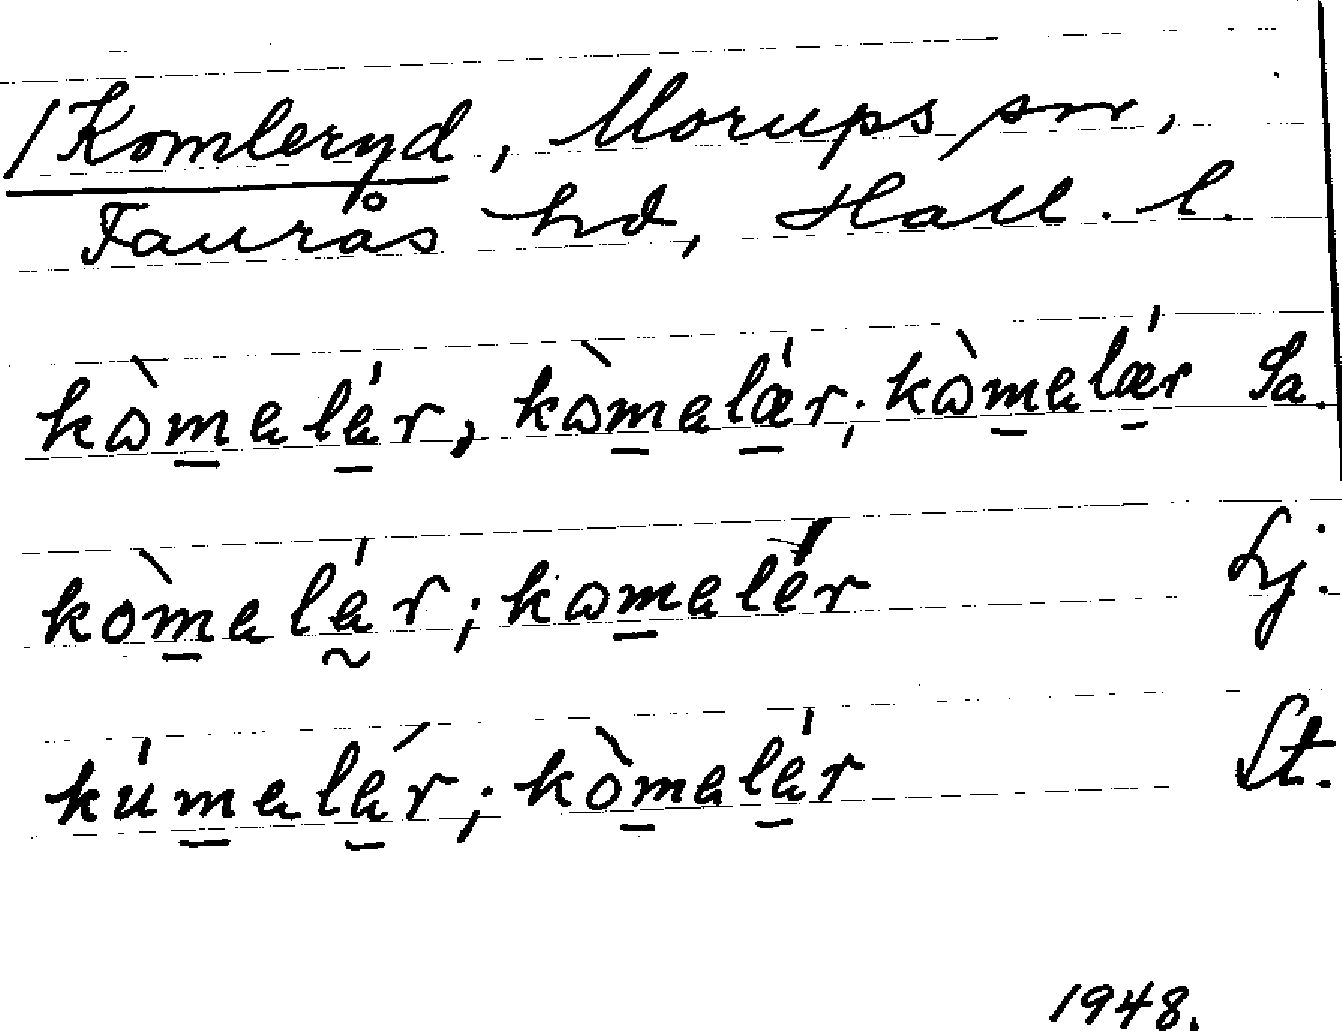 /Komleryd, Morups sn,
Faurås hd, Hall. l.
kòmalér, kòmalǽr; kòmalǽr Sa.
kòmalér; komalér Lj.
kúmalér; kòmalér St.
1948.